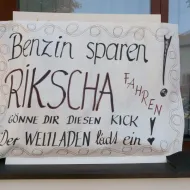 Benzin sparen !
RIKSCHA
FAHREN
GÖNNE DIR DIESEN KICK
Der WELTLADEN lädt ein !